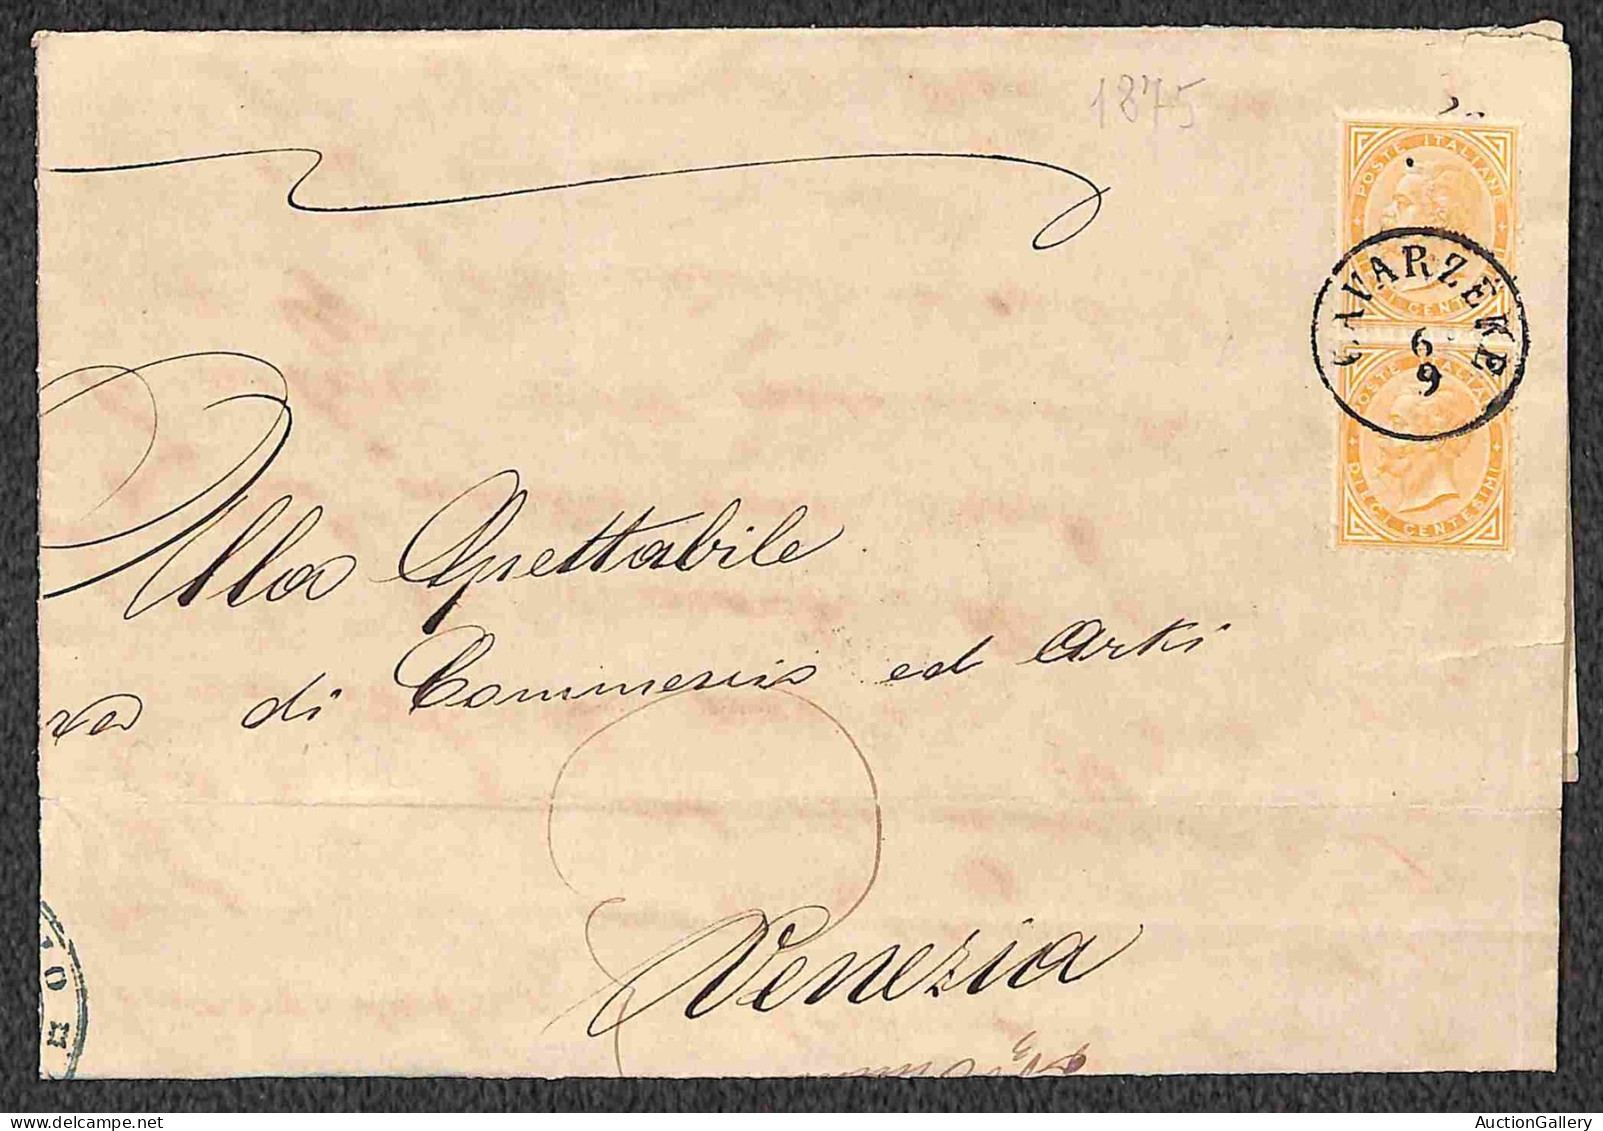 1875
POSTE ITALIANE
CENT
CAVARZERE
6
9
POSTE ITALIA
DIECI CENTESIMI
Alla Spettabile
di Commercio ed Arti
Venezia
AuctionGallery